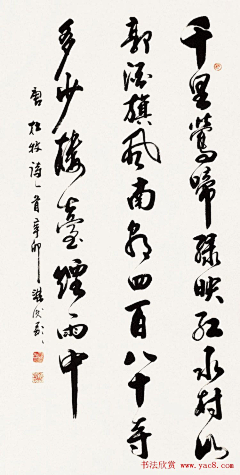 千里鶯啼緑映红水村山
郭酒旗風南朝四百八十寺
多少樓臺煙雨中
唐杜牧诗一首辛卯
书法欣赏